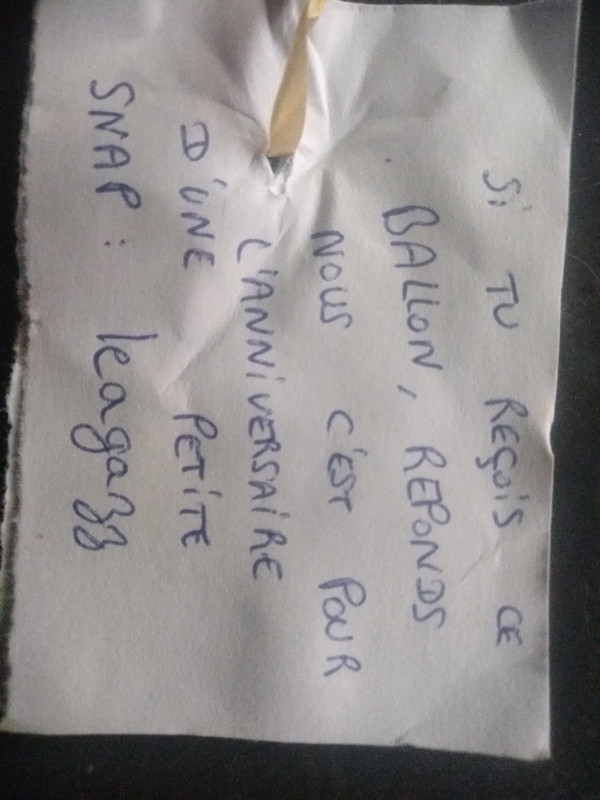 Si TU REÇOIS CE
BALLON, REPONDS
NOUS C'EST POUR
L'ANNIVERSAIRE
D'UNE PETITE
SNAP: leagazz